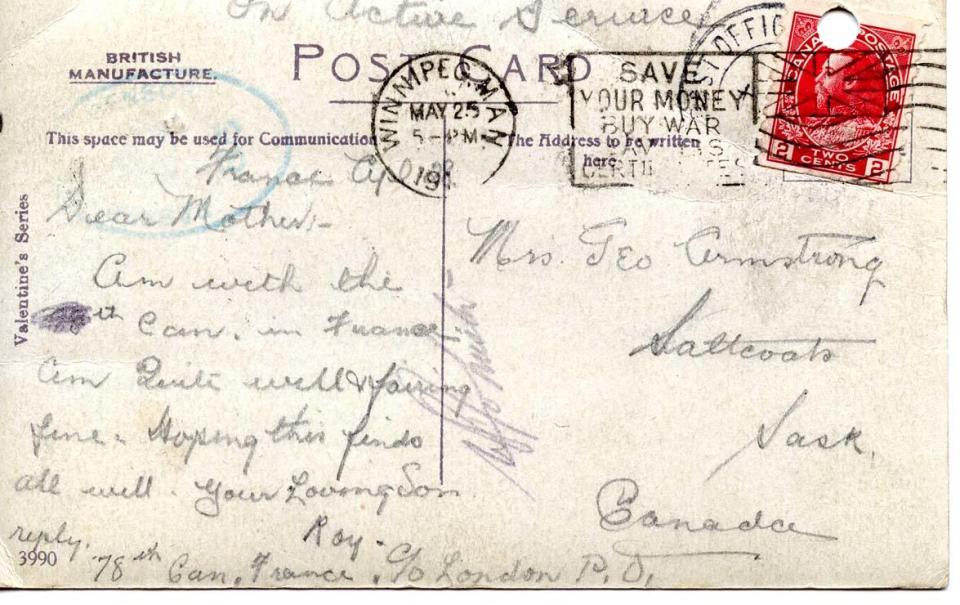 On Active Service
BRITISH
MANUFACTURE.
POST CARD
WINNIPEG, MAN
MAY 25
5 - PM
191
SAVE
YOUR MONEY
BUY WAR
POST OFFIC
CANADA POSTAGE
2 TWO CENTS 2
This space may be used for Communication
The Address to be written
here.
Valentine's Series
France Apl
Dear Mother:-
Am with the
th Can. in France
Am Quite well & fairing
fine - Hoping this finds
all well. Your Loving Son
Roy -
reply.
78th Can. France. C/o London P.O.
3990
Mrs. Geo Armstrong
Saltcoats
Sask.
Canada